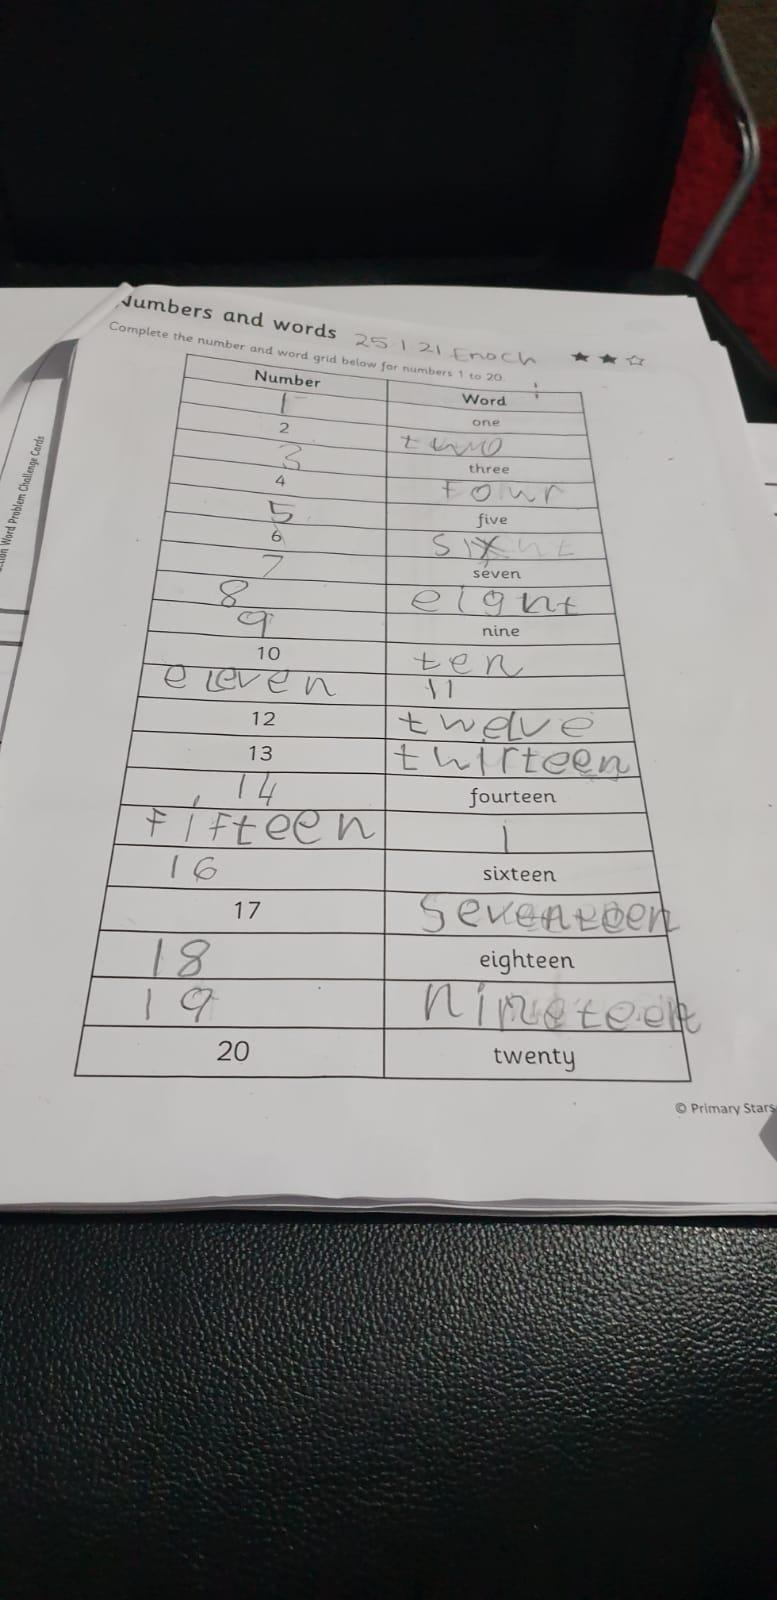 Numbers and words 25.1 21 Enoch
Complete the number and word grid below for numbers 1 to 20.
Number Word
1 one
2 two
3 three
4 four
5 five
6 six
7 seven
8 eight
9 nine
10 ten
eleven 11
12 twelve
13 thirteen
14 fourteen
fifteen 1
16 sixteen
17 seventeen
18 eighteen
19 nineteen
20 twenty
© Primary Stars
Word Problem Challenge Cards